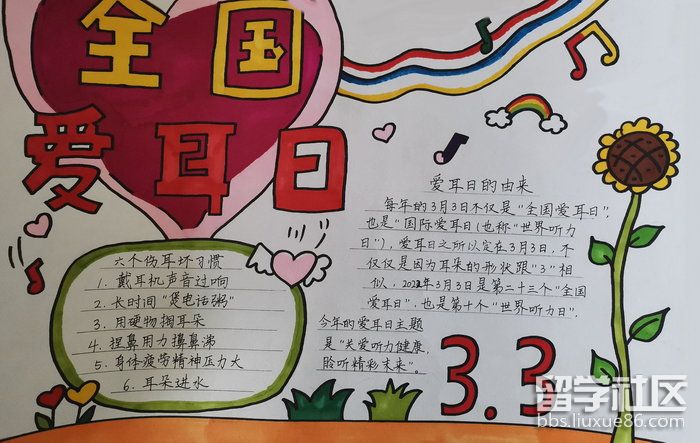 全国
爱耳日
六个伤耳坏习惯
1.戴耳机声音过响
2.长时间"煲电话粥"
3.用硬物掏耳朵
4.捏鼻用力擤鼻涕
5.身体疲劳精神压力大
6.耳朵进水
爱耳日的由来
每年的3月3日不仅是"全国爱耳日",
也是"国际爱耳日(也称"世界听力
日"),爱耳日之所以定在3月3日,不
仅仅是因为耳朵的形状跟"3"相
似,2022年3月3日是第二十三个"全国
爱耳日",也是第十个"世界听力日".
今年的爱耳日主题
是"关爱听力健康,
聆听精彩未来"。
3.3
留学社区
bbs.liuxue86.com